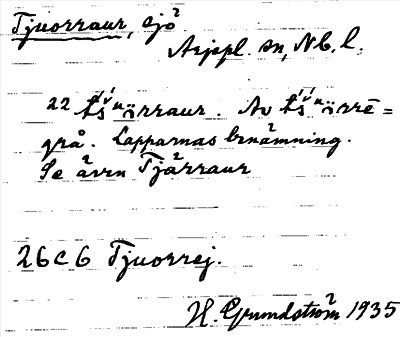 Tjuorraur, sjö
Arjepl. sn, Nb. l.
22 . Av
grå. Lapparnas benämning.
Se även Tjårraur
26C6 Tjuorrej.
H. Grundström 1935